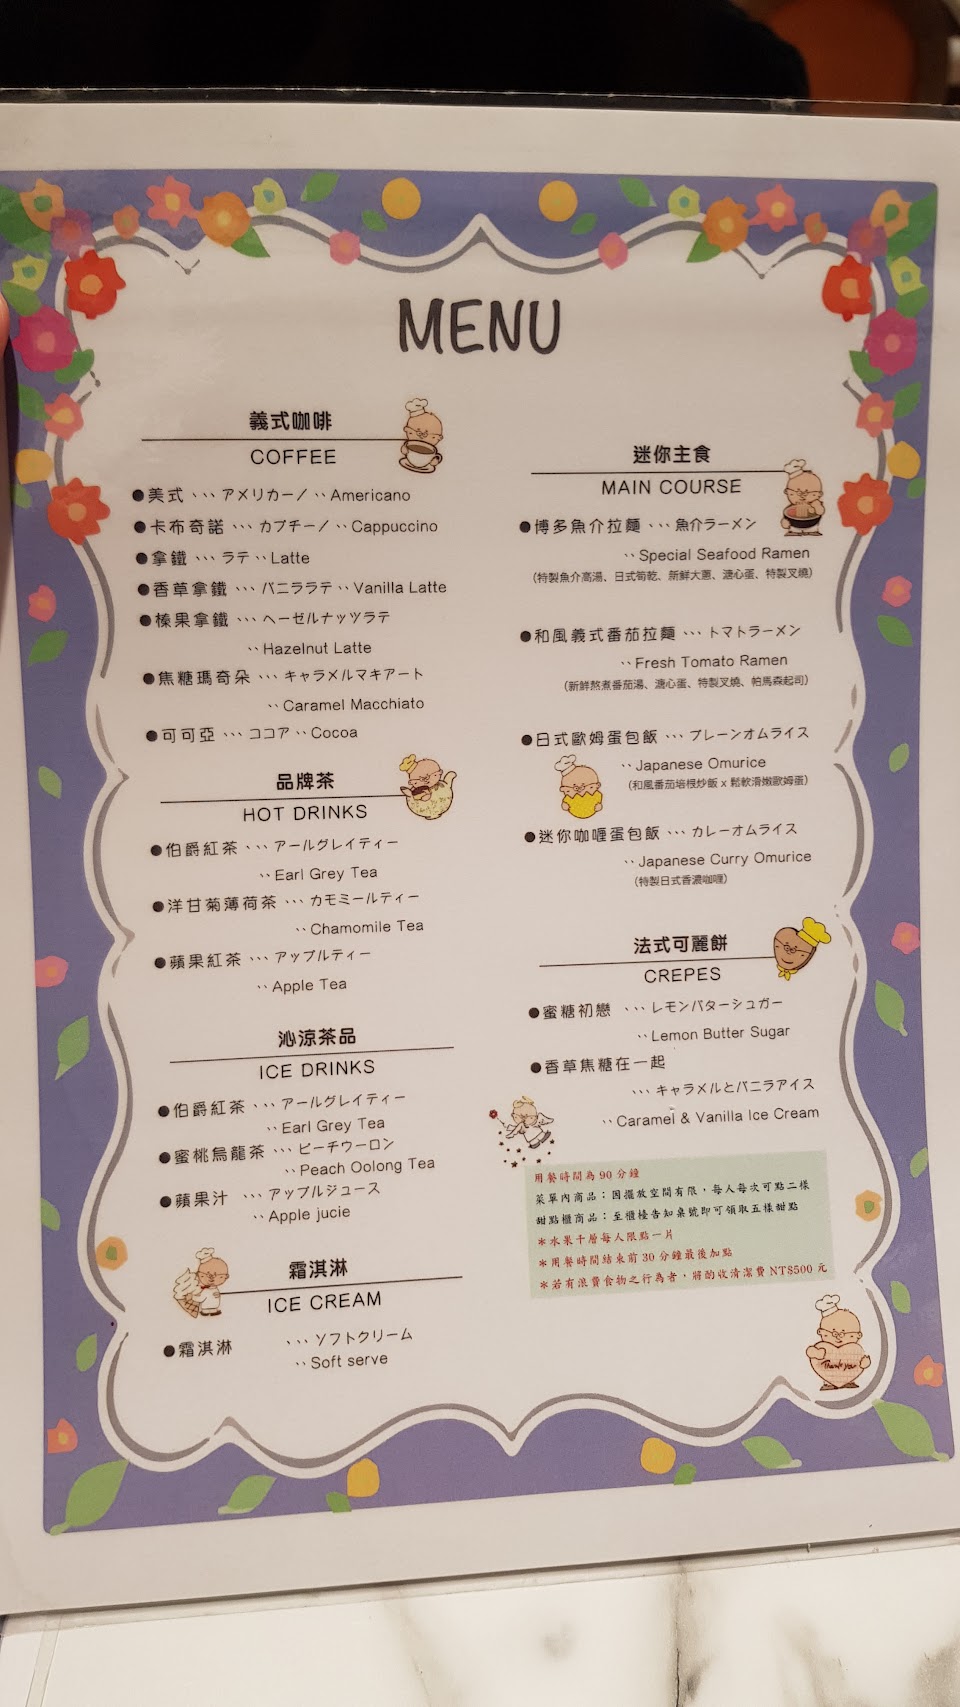 MENU
義式咖啡
COFFEE
●美式 ··· アメリカーノ ·· Americano
●卡布奇諾 ··· カプチーノ ·· Cappuccino
●拿鐵 ··· ラテ ·· Latte
●香草拿鐵 ··· バニララテ ·· Vanilla Latte
●榛果拿鐵 ··· ヘーゼルナッツラテ
·· Hazelnut Latte
●焦糖瑪奇朵 ··· キャラメルマキアート
·· Caramel Macchiato
●可可亞 ··· ココア ·· Cocoa
品牌茶
HOT DRINKS
●伯爵紅茶 ··· アールグレイティー
·· Earl Grey Tea
●洋甘菊薄荷茶 ··· カモミールティー
·· Chamomile Tea
●蘋果紅茶 ··· アップルティー
·· Apple Tea
沁涼茶品
ICE DRINKS
●伯爵紅茶 ··· アールグレイティー
·· Earl Grey Tea
●蜜桃烏龍茶 ··· ピーチウーロン
·· Peach Oolong Tea
●蘋果汁 ··· アップルジュース
·· Apple jucie
霜淇淋
ICE CREAM
●霜淇淋 ··· ソフトクリーム
·· Soft serve
迷你主食
MAIN COURSE
●博多魚介拉麵 ··· 魚介ラーメン
·· Special Seafood Ramen
(特製魚介高湯、日式筍乾、新鮮大蔥、溏心蛋、特製叉燒)
●和風義式番茄拉麵 ··· トマトラーメン
·· Fresh Tomato Ramen
(新鮮熬煮番茄湯、溏心蛋、特製叉燒、帕馬森起司)
●日式歐姆蛋包飯 ··· プレーンオムライス
·· Japanese Omurice
(和風番茄培根炒飯 x 鬆軟滑嫩歐姆蛋)
●迷你咖喱蛋包飯 ··· カレーオムライス
·· Japanese Curry Omurice
(特製日式香濃咖喱)
法式可麗餅
CREPES
●蜜糖初戀 ··· レモンバターシュガー
·· Lemon Butter Sugar
●香草焦糖在一起
··· キャラメルとバニラアイス
·· Caramel & Vanilla Ice Cream
用餐時間為 90 分鐘
菜單內商品：因擺放空間有限，每人每次可點二樣
甜點櫃商品：至櫃檯告知桌號即可領取五樣甜點
＊水果千層每人限點一片
＊用餐時間結束前 30 分鐘最後加點
＊若有浪費食物之行為者，將酌收清潔費 NT$500 元
Thank you